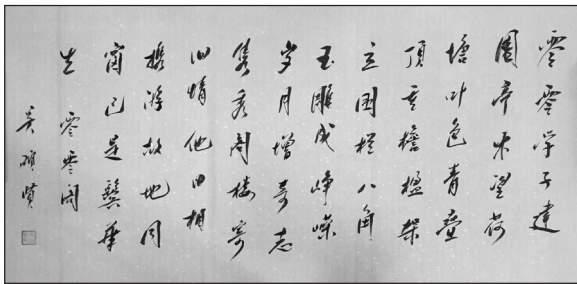 零零学子建
園亭来望荷
塘叶色青壶
顶重檐楹架
立围栏八角
玉雕成峥嵘
岁月增奇志
隽秀阁楼寄
旧情他日相
携游故地同
窗已是鬓华
生 零零阁
吴硕贤